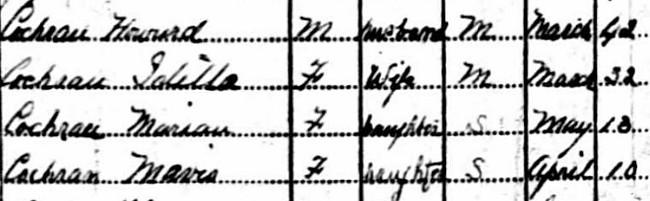 Cochran Howard M Husband M March 42
Cochran Idilla F Wife M March 32
Cochran Marian F Daughter S May 13
Cochran Mavis F Daughter S April 10